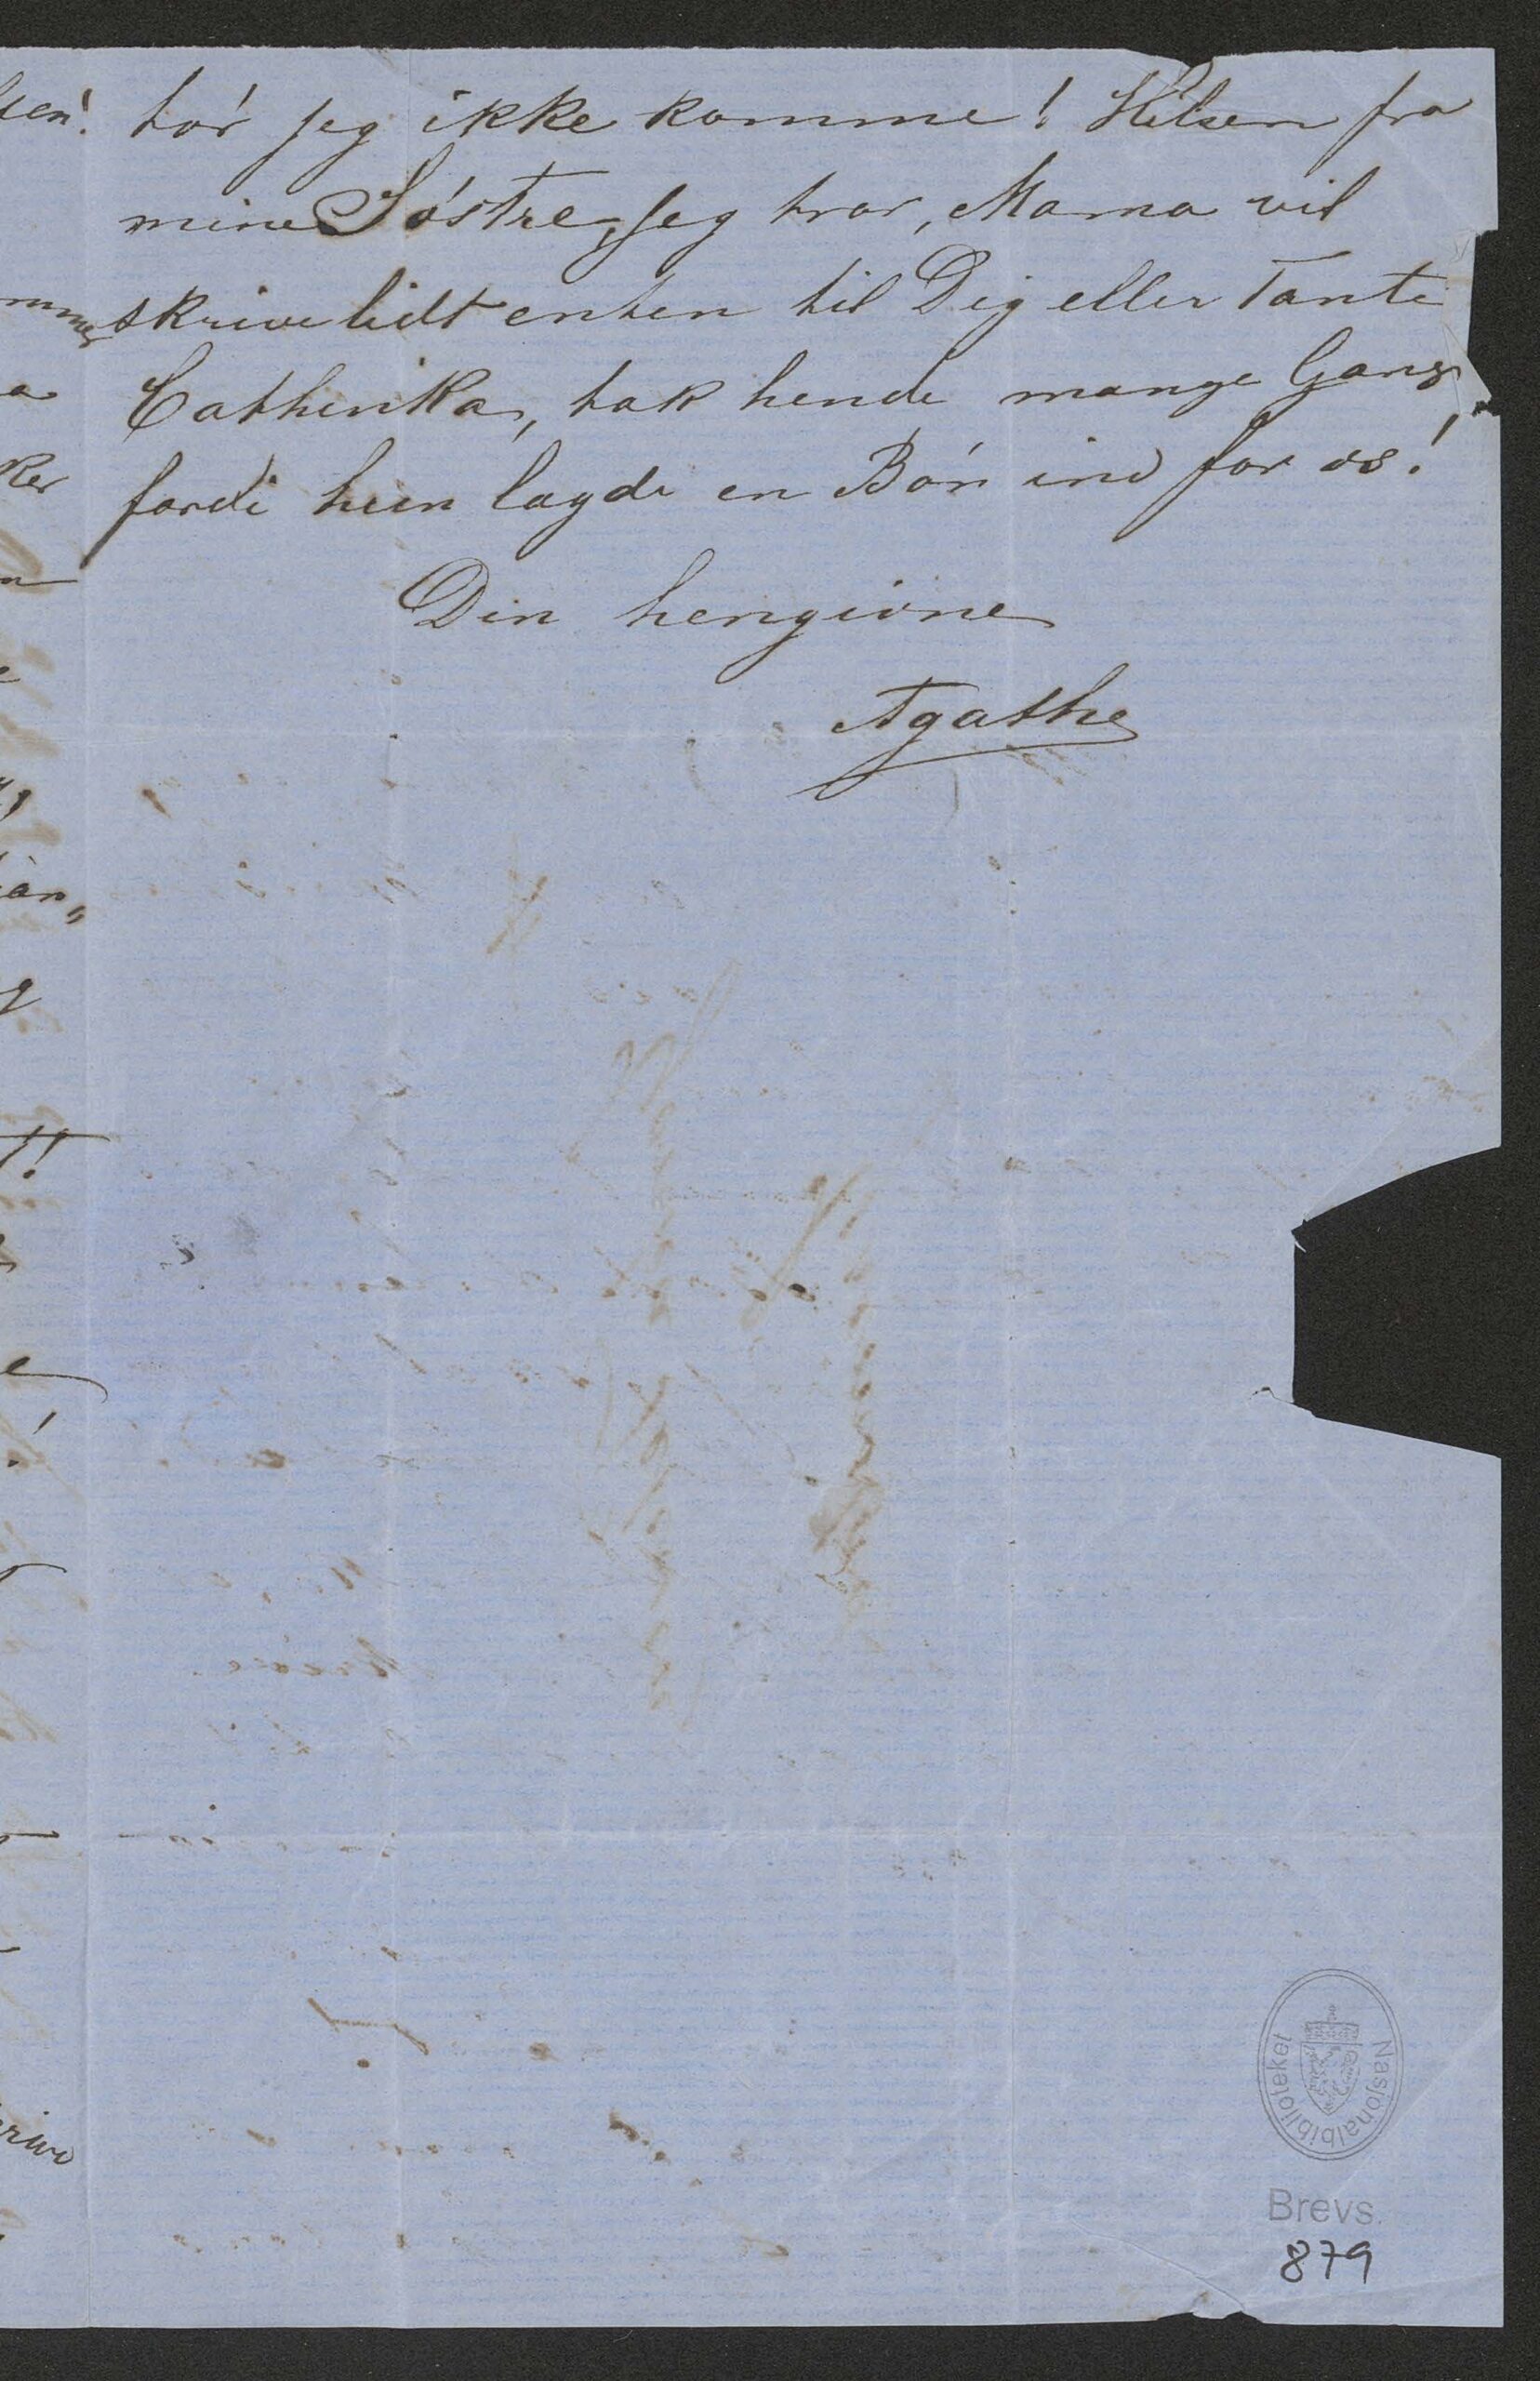 tör jeg ikke komme! Hilsen fra
mine Söstre, Jeg tror, Mama vil
skrive lidt enten til Dig eller Tante
Cathinka, tak hende mange Gang
fordi hun lagde en Bön ind for os!
Din hengivne
Agathe
Nasjonalbiblioteket
Brevs.
879